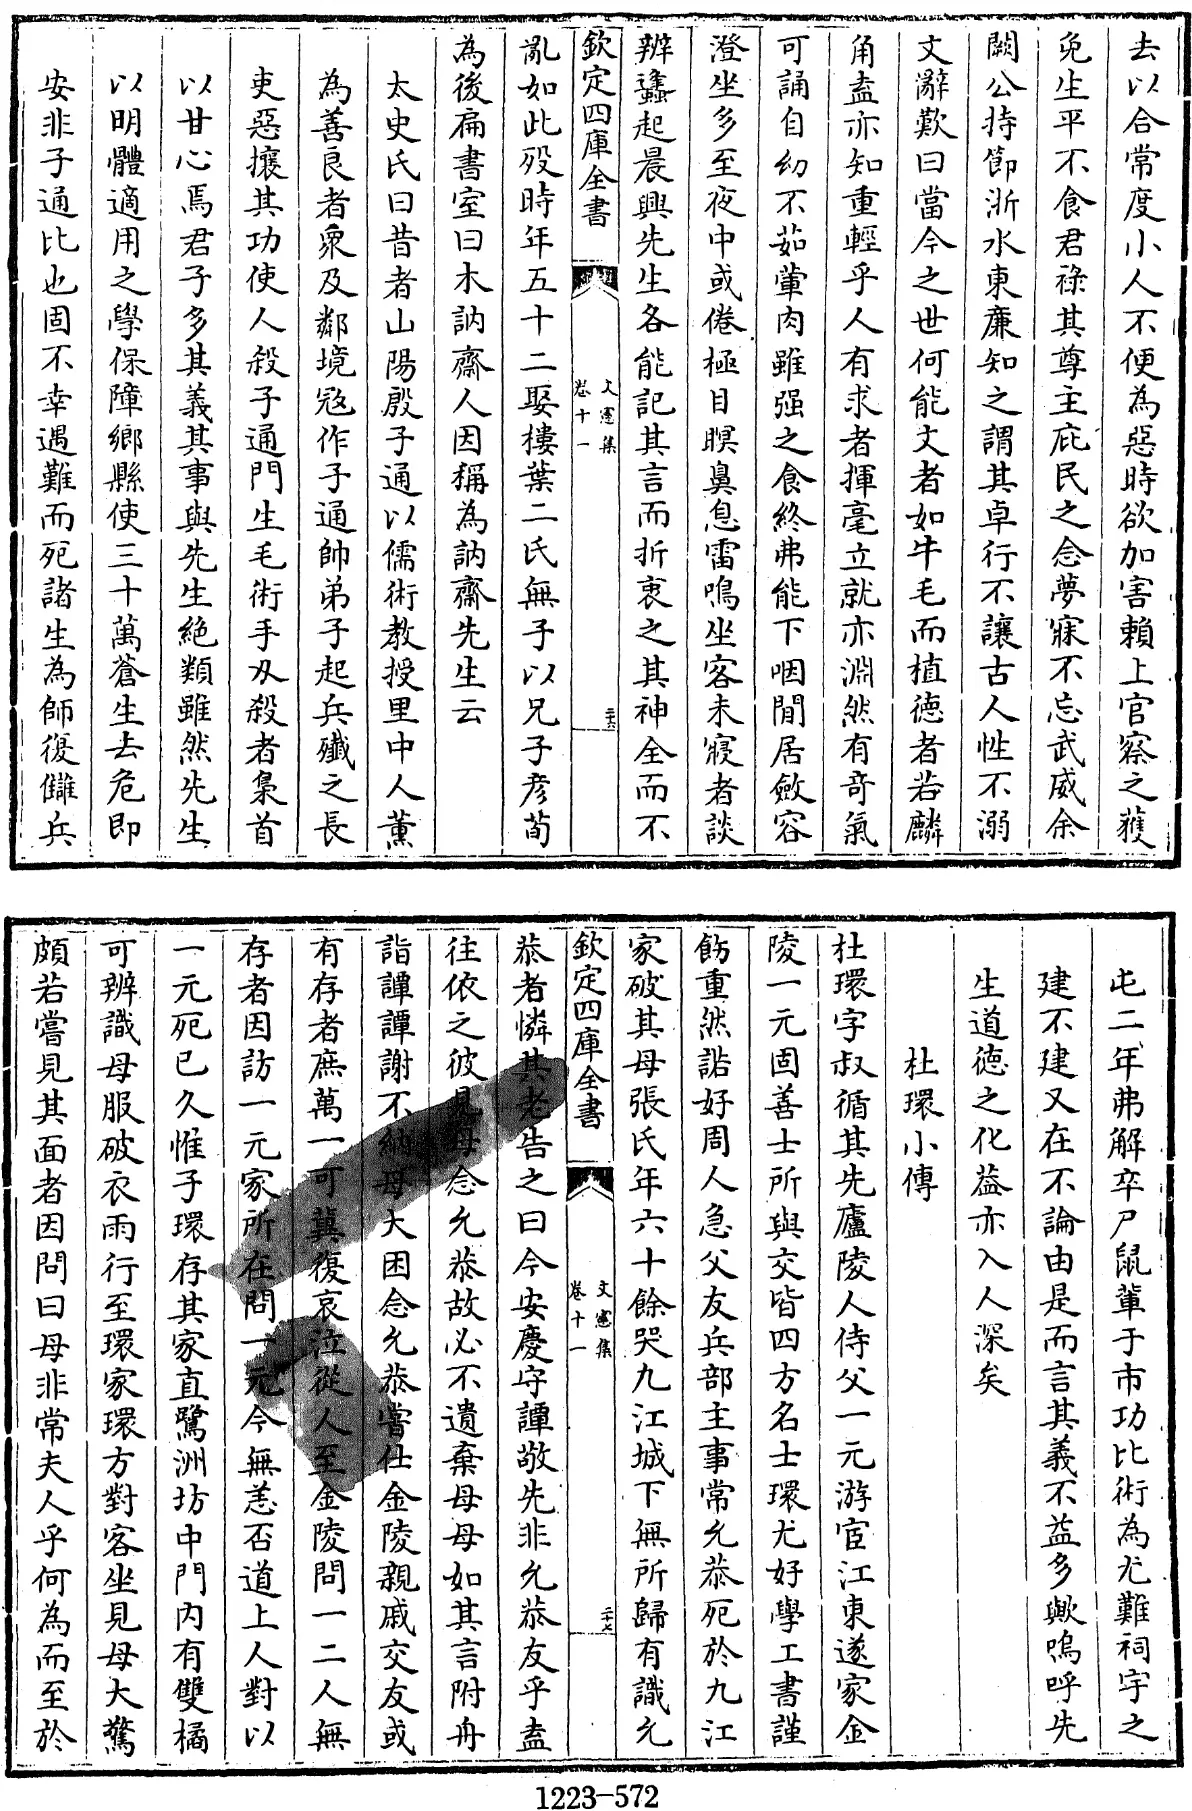 去以合常度小人不便為惡時欲加害賴上官察之獲
免生平不食君祿其尊主庇民之念夢寐不忘武威余
闕公持節浙水東廉知之謂其卓行不讓古人性不溺
文辭歎曰當今之世何能文者如牛毛而植德者若麟
角盍亦知重輕乎人有求者揮毫立就亦淵然有奇氣
可誦自幼不茹葷肉雖强之食終弗能下咽閒居斂容
澄坐多至夜中或倦極目瞑鼻息雷鳴坐客未寢者談
辨蠭起晨興先生各能記其言而折衷之其神全而不
欽定四庫全書
文憲集
卷十一
二十六
亂如此歿時年五十二娶樓葉二氏無子以兄子彦荀
為後扁書室曰木訥齋人因稱為訥齋先生云
太史氏曰昔者山陽殷子通以儒術教授里中人薰
為善良者衆及鄰境寇作子通帥弟子起兵殲之長
吏惡攘其功使人殺子通門生毛術手刃殺者梟首
以甘心焉君子多其義其事與先生絶類雖然先生
以明體適用之學保障鄉縣使三十萬蒼生去危即
安非子通比也固不幸遇難而死諸生為師復讎兵
屯二年弗解卒尸鼠軰于市功比術為尤難祠宇之
建不建又在不論由是而言其義不益多歟嗚呼先
生道德之化葢亦入人深矣
杜環小傳
杜環字叔循其先廬陵人侍父一元游宦江東遂家金
陵一元固善士所與交皆四方名士環尤好學工書謹
飭重然諾好周人急父友兵部主事常允恭死於九江
家破其母張氏年六十餘哭九江城下無所歸有識允
欽定四庫全書
文憲集
卷十一
二十七
恭者憐其老告之曰今安慶守譚敬先非允恭友乎盍
往依之彼見母念允恭故必不遺棄母母如其言附舟
詣譚譚謝不納母大困念允恭嘗仕金陵親戚交友或
有存者庶萬一可冀復哀泣從人至金陵問一二人無
存者因訪一元家所在問一元今無恙否道上人對以
一元死已久惟子環存其家直鷺洲坊中門内有雙橘
可辨識母服破衣雨行至環家環方對客坐見母大驚
頗若嘗見其面者因問曰母非常夫人乎何為而至於
1223-572